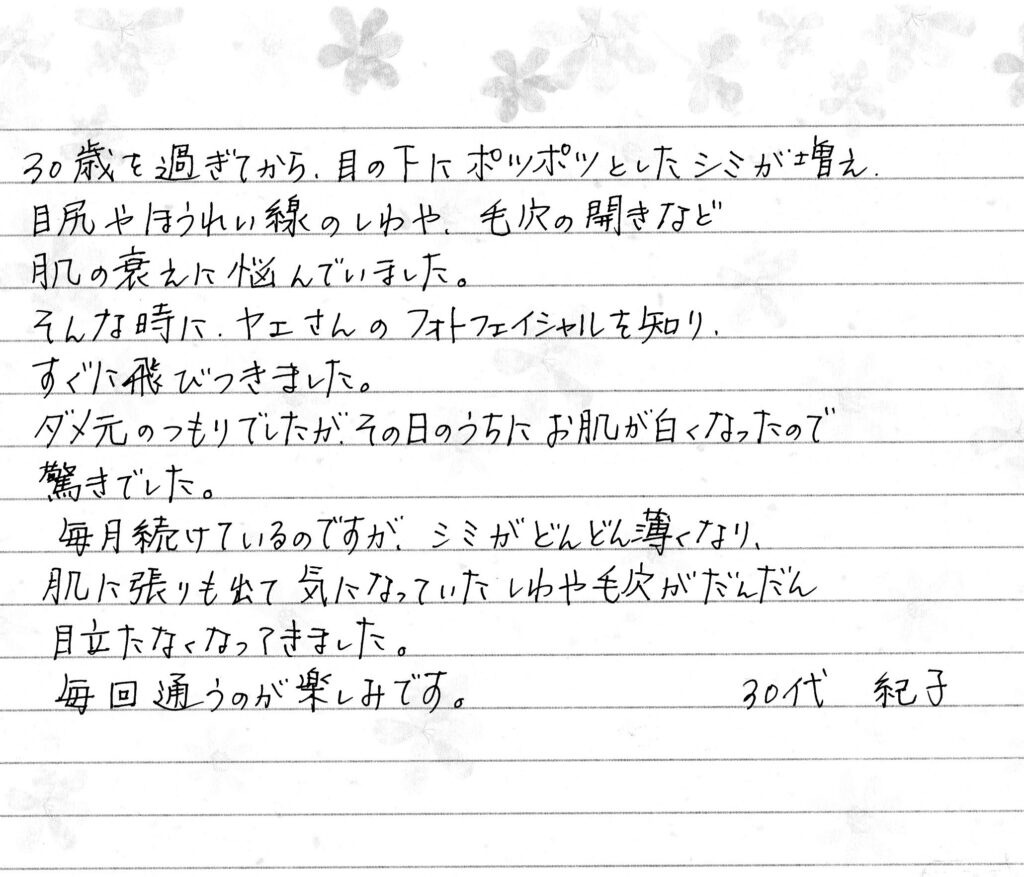 30歳を過ぎてから、目の下にポツポツとしたシミが増え、
目尻やほうれい線のしわや、毛穴の開きなど
肌の衰えに悩んでいました。
そんな時に、ヤエさんのフォトフェイシャルを知り、
すぐに飛びつきました。
ダメ元のつもりでしたが、その日のうちにお肌が白くなったので
驚きでした。
毎月続けているのですが、シミがどんどん薄くなり、
肌に張りも出て気になっていたしわや毛穴がだんだん
目立たなくなってきました。
毎回通うのが楽しみです。 30代 紀子